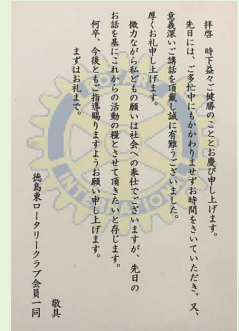 拝啓　時下益々ご健勝のこととお慶び申し上げます。
先日には、ご多忙中にもかかわりませずお時間をさいていただき、又、
意義深いご講話を頂戴し誠に有難うございました。
厚くお礼申し上げます。
微力ながら私どもの願いは社会への奉仕でございますが、先日の
お話を基にこれからの活動の糧とさせて頂きたいと存じます。
何卒、今後ともご指導賜りますようお願い申し上げます。
まずはお礼まで。
敬具
徳島東ロータリークラブ会員一同
INTERNATIONAL